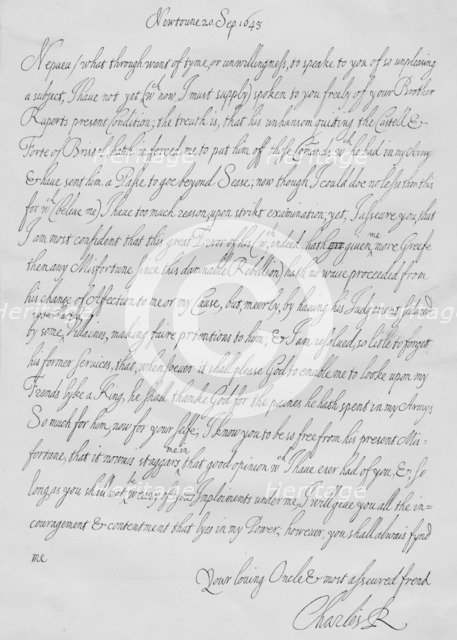 Newtoune 20 Sep: 1645
Nepueu/ what through want of tyme, or unwillingness, to speake to you of so unplasing
a subject, I have not yet (wch now I must supply) spoken to you freely of your Brother
Ruperts present Condition; the treuth is, that his unhansom quiting the Castell &
Forte of Bristol, hath inforced me to put him of those Comands wch he had in my Army
& have sent him a Passe to goe beyond Sease; now though I could doe no less then this
for wch (beliue me) I have too much reason, upon strikt examination, yet, I assseure you, that
I am most confident that this great Error of his, (wch, indeed, hath given me more Greefe
then any Misfortune since this damnable Rebellion) hath no wase proceeded from
his change of Affection to me or my Cause, but, meerly, by having his Judgement seduced
by some Vilaines, making faire pretentions to him; & I am resolved, so litle to forget
his former services, that, whensoever it shall please God to enable me to looke upon my
Frends lyke a King, he shall thanke God for the paines he hath spent in my Armys
So much for him, now for your selfe; I know you to be so free from his present Mis=
fortune, that it nowais staggars me in that good opinion wch I have ever had of you, & so
long as you shall not be weary of your Imploiments under me, I will geue you all the in=
couragement & contentment that lyes in my Power; however, you shall always fynd
me
Your loving Oncle & most asseured frend
Charles R
Heritage
Heritage
Heritage
Heritage
Heritage